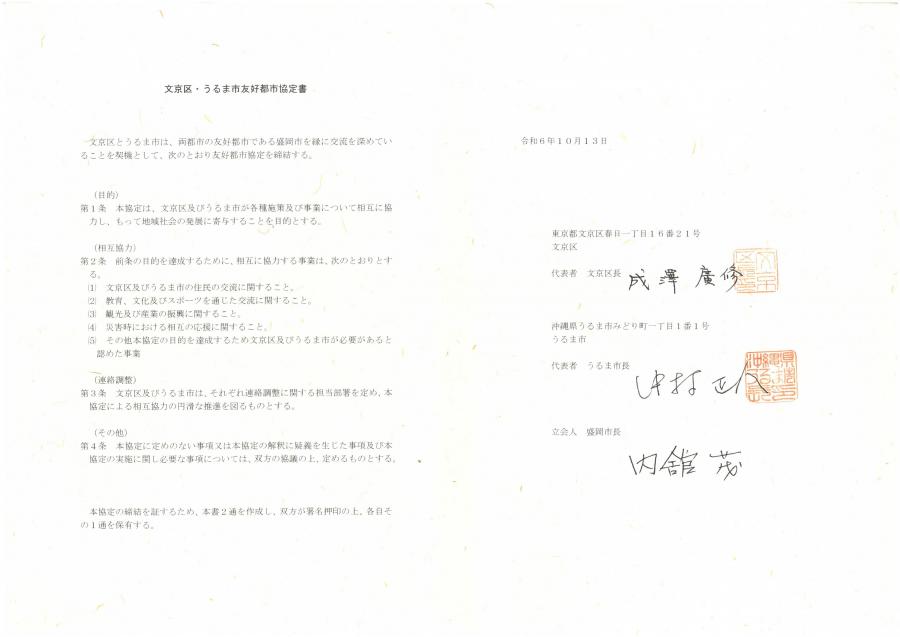 文京区・うるま市友好都市協定書
文京区とうるま市は、両都市の友好都市である盛岡市を縁に交流を深めてい
ることを契機として、次のとおり友好都市協定を締結する。
（目的）
第１条　本協定は、文京区及びうるま市が各種施策及び事業について相互に協
力し、もって地域社会の発展に寄与することを目的とする。
（相互協力）
第２条　前条の目的を達成するために、相互に協力する事業は、次のとおりとす
る。
⑴　文京区及びうるま市の住民の交流に関すること。
⑵　教育、文化及びスポーツを通じた交流に関すること。
⑶　観光及び産業の振興に関すること。
⑷　災害時における相互の応援に関すること。
⑸　その他本協定の目的を達成するため文京区及びうるま市が必要があると
認めた事業
（連絡調整）
第３条　文京区及びうるま市は、それぞれ連絡調整に関する担当部署を定め、本
協定による相互協力の円滑な推進を図るものとする。
（その他）
第４条　本協定に定めのない事項又は本協定の解釈に疑義を生じた事項及び本
協定の実施に関し必要な事項については、双方の協議の上、定めるものとする。
本協定の締結を証するため、本書２通を作成し、双方が署名押印の上、各自そ
の１通を保有する。
令和６年１０月１３日
東京都文京区春日一丁目１６番２１号
文京区
代表者　文京区長　成澤　廣修
沖縄県うるま市みどり町一丁目１番１号
うるま市
代表者　うるま市長
中村　正人
立会人　盛岡市長
内舘　茂